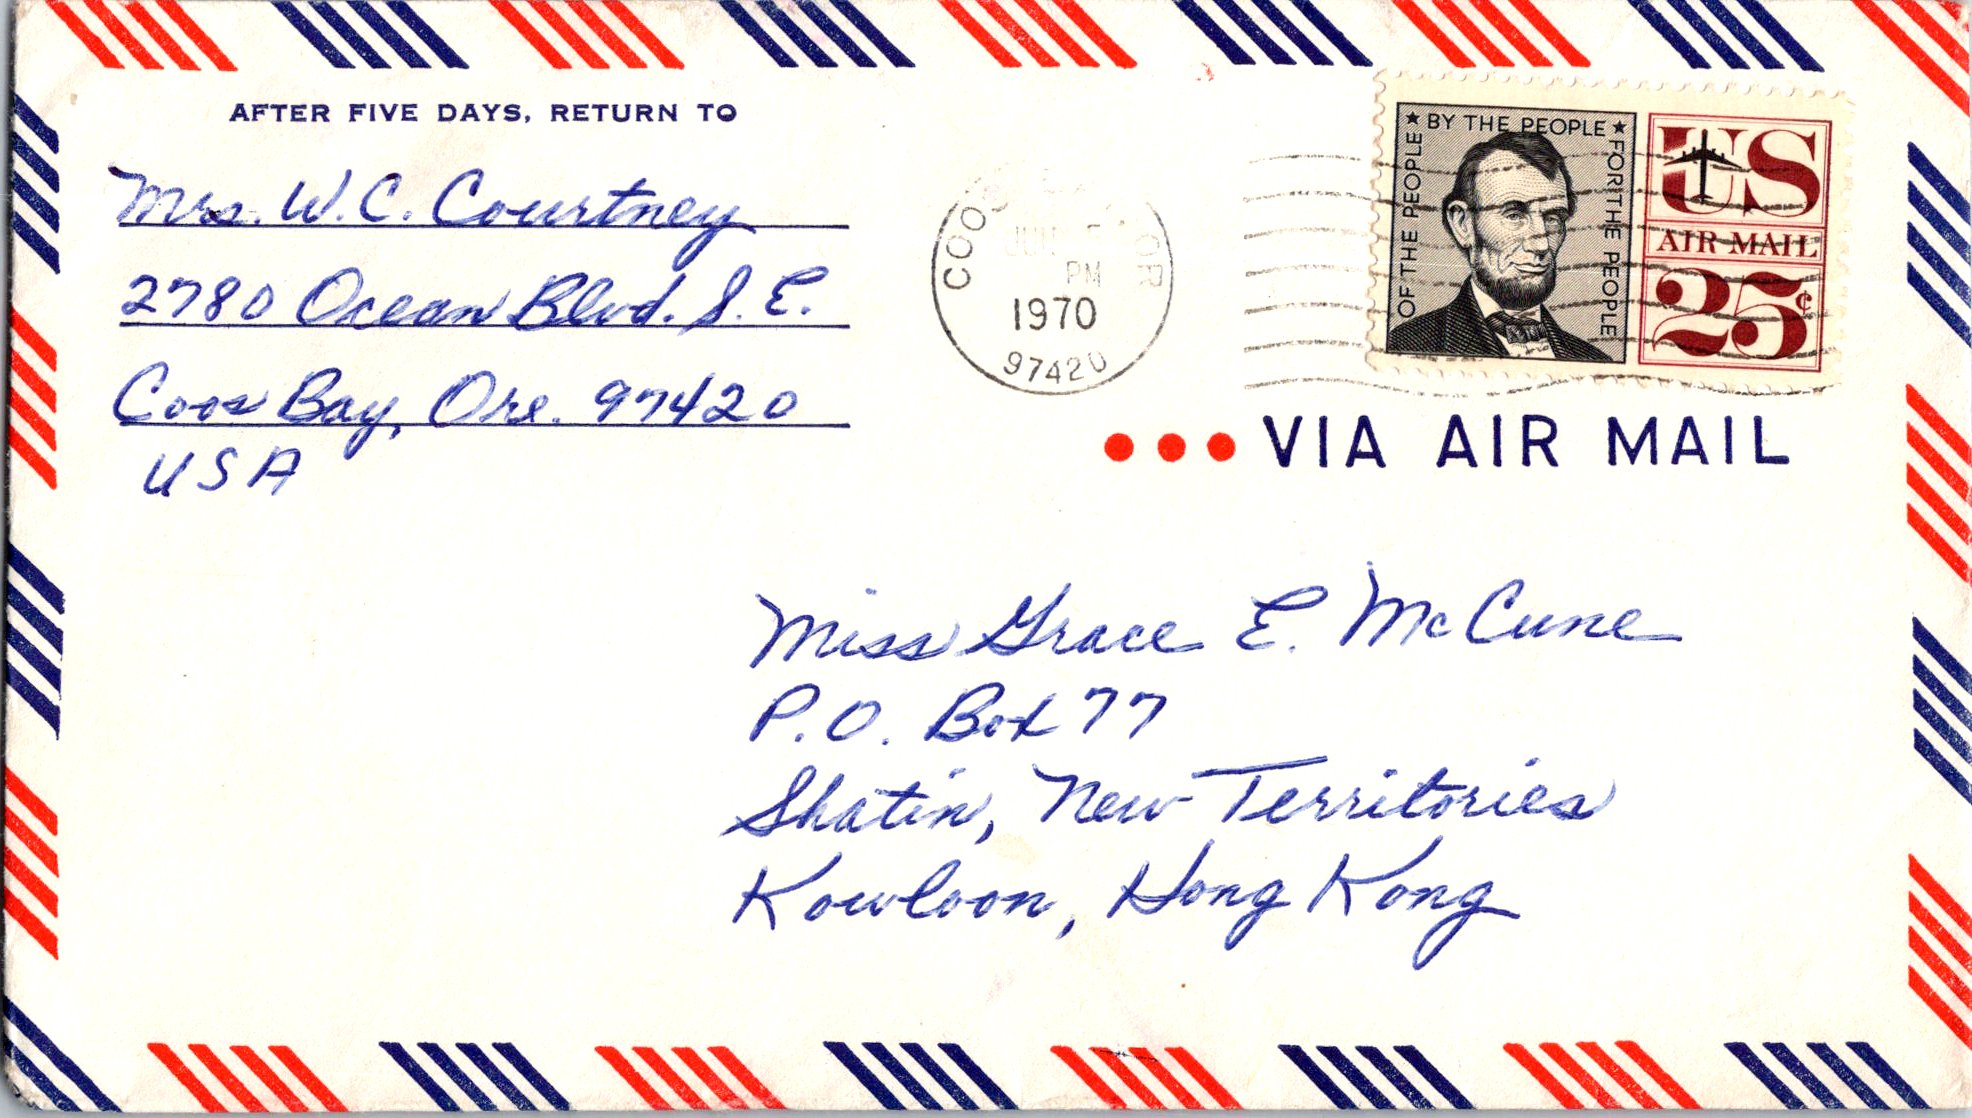 AFTER FIVE DAYS, RETURN TO
Mrs. W. C. Courtney
2780 Ocean Blvd. S. E.
Coos Bay, Ore. 97420
USA
COOS OR
PM
1970
97420
OF THE PEOPLE ★ BY THE PEOPLE ★ FOR THE PEOPLE
US
AIR MAIL
25¢
VIA AIR MAIL
Miss Grace E. McCune
P.O. Box 77
Shatin, New Territories
Kowloon, Hong Kong